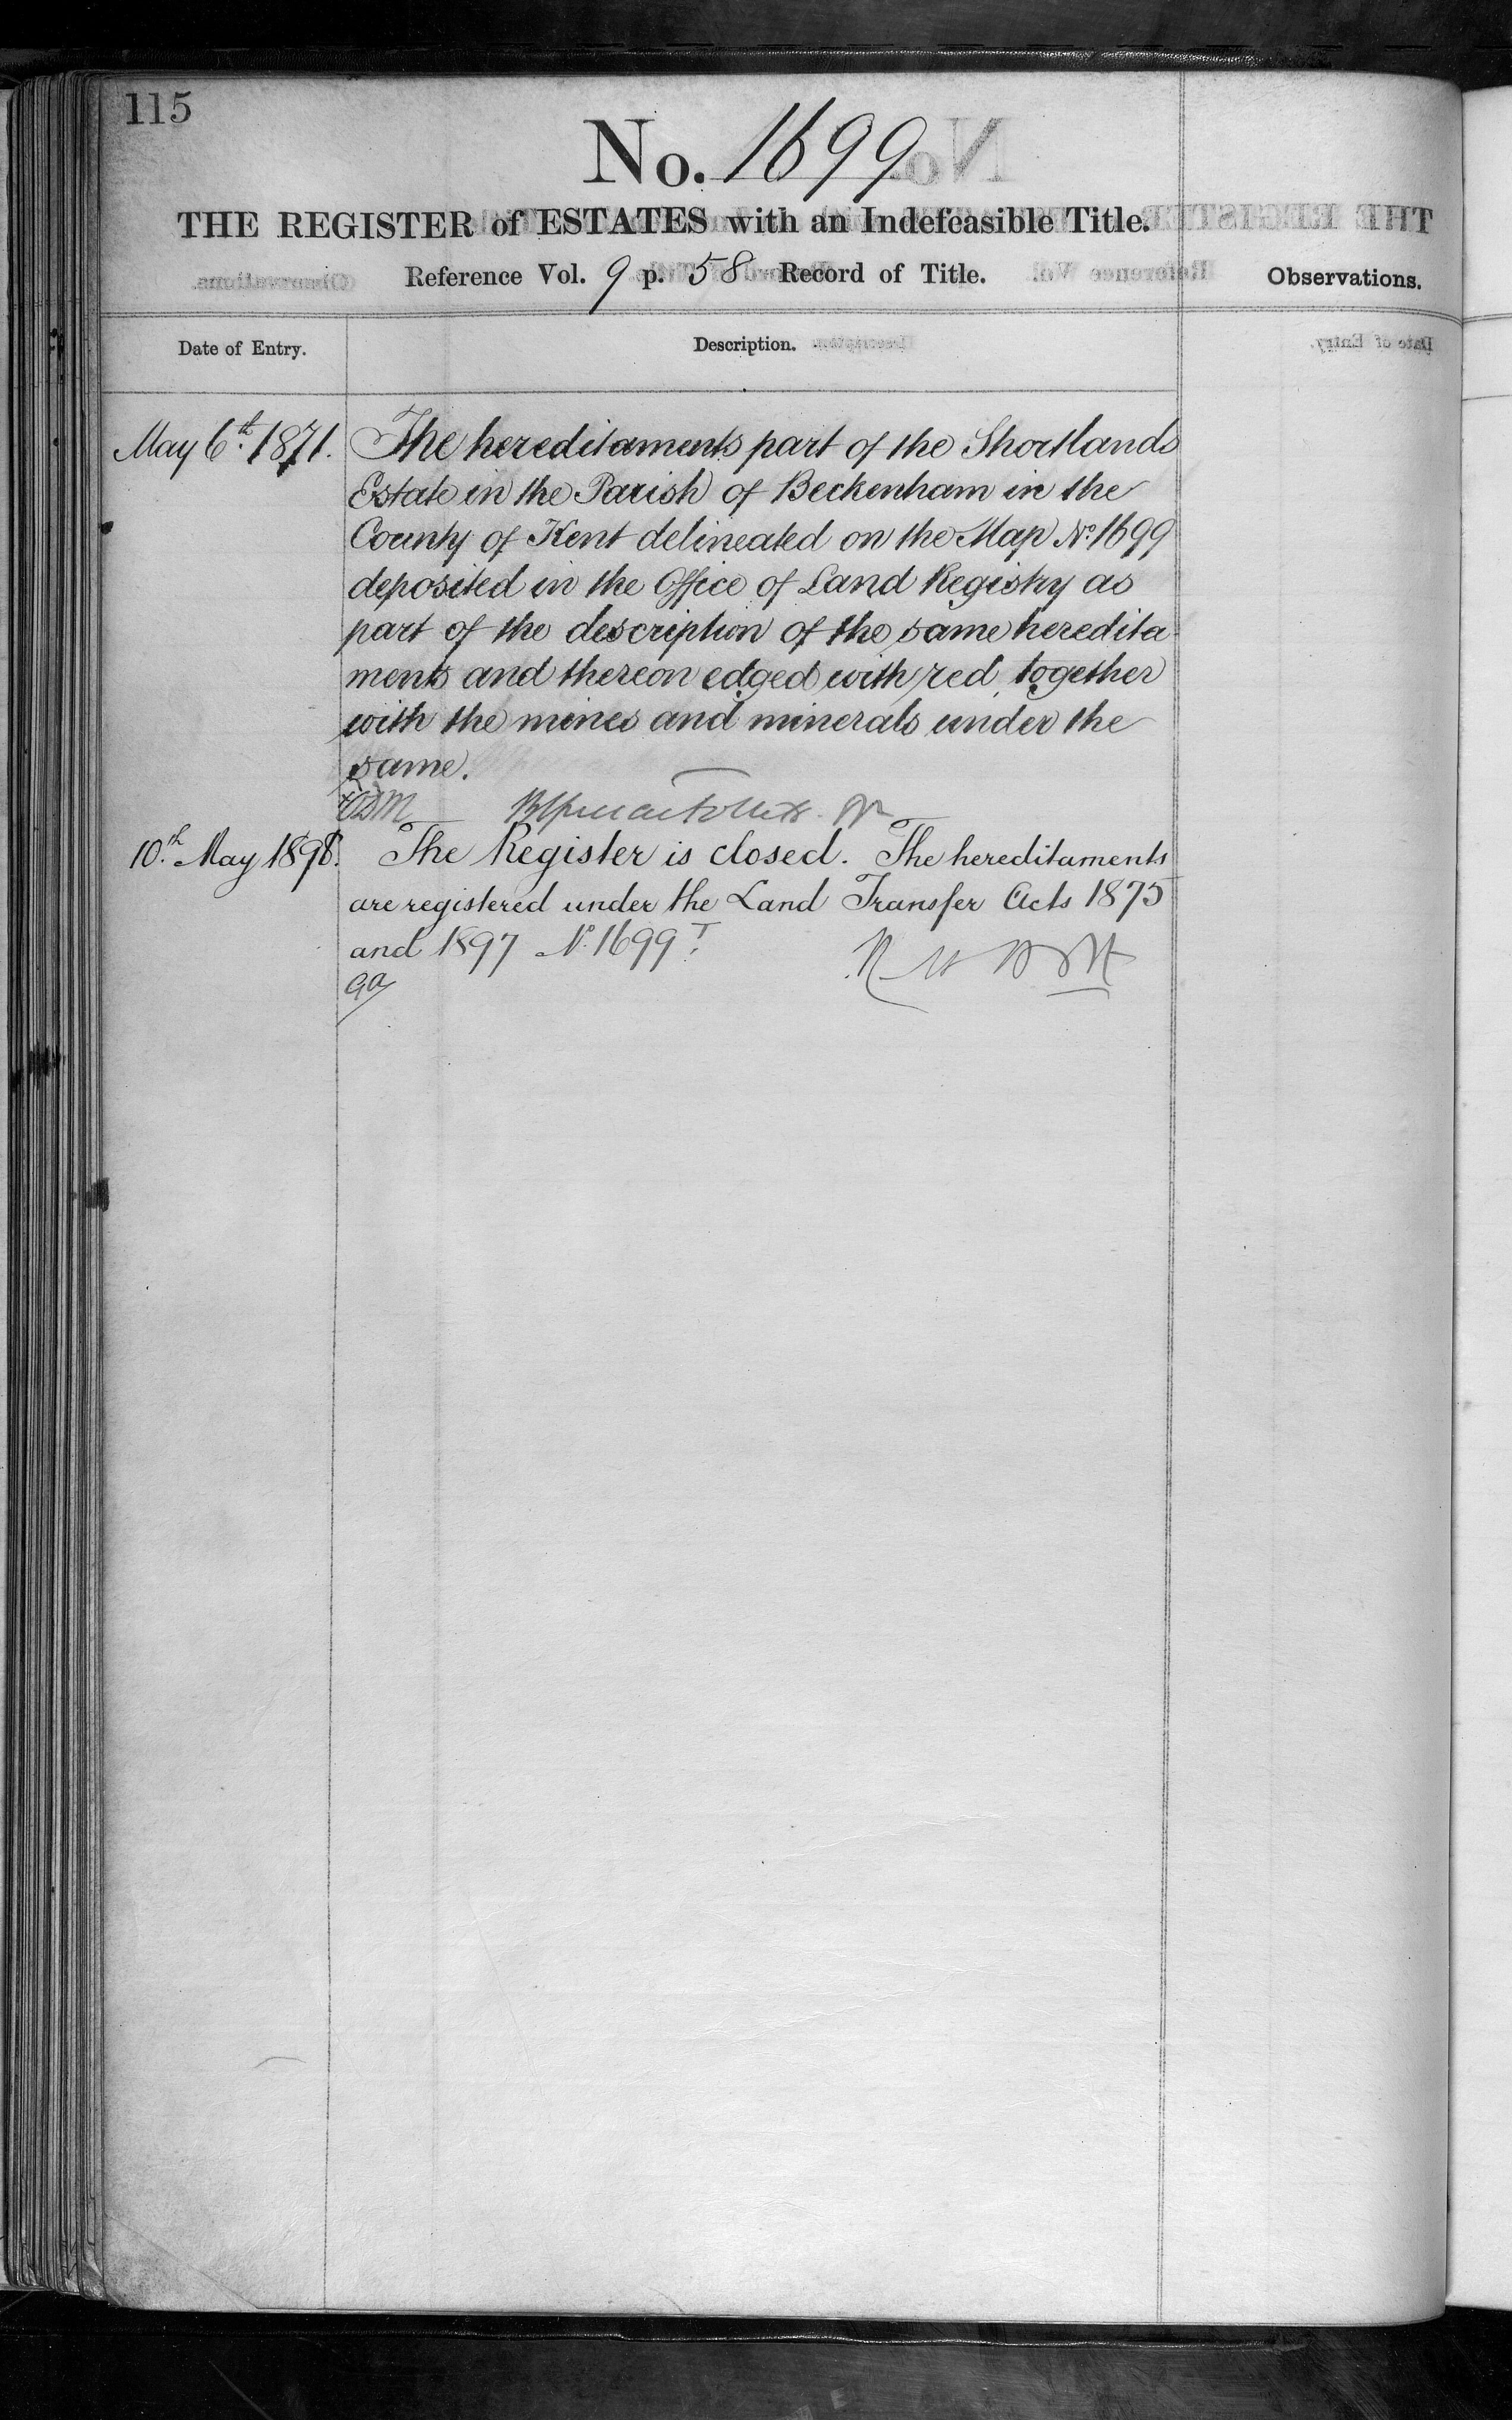 115
No. 1699
THE REGISTER of ESTATES with an Indefeasible Title.
Reference Vol. 9 p. 58 Record of Title.
Observations.
Date of Entry.
Description.
May 6th. 1871.
The hereditaments part of the Shortlands
Estate in the Parish of Beckenham in the
County of Kent delineated on the Map No. 1699
deposited in the Office of Land Registry as
part of the description of the same heredita-
ments and thereon edged with red, together
with the mines and minerals under the
same.
10th. May 1898.
The Register is closed. The hereditaments
are registered under the Land Transfer Acts 1875
and 1897 No. 1699T.